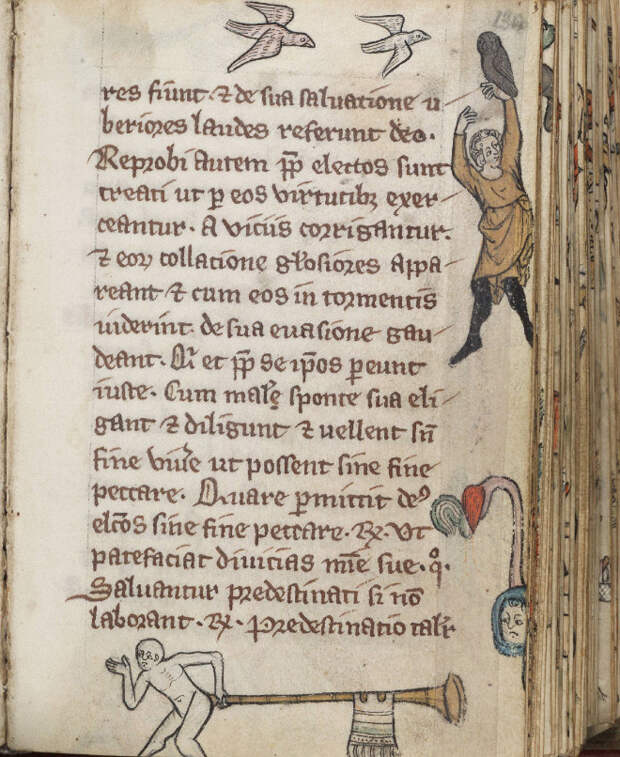 res fiunt· ⁊ de sua saluatione u
beriores laudes referunt deo·
Reprobi autem pp̄ electos sunt
creati ut ꝑ eos virtutibꝫ exer
ceantur· a viciis corrigantur·
⁊ eoꝝ collatione gl̄osiores appa
reant ⁊ cum eos in tormentis
uiderint· de sua euasione gau
deant· Qͥ et pp̄ se ip̄os ꝑeunt
iuste· Cum malū sponte sua eli
gant ⁊ diligunt ⁊ uellent sn̄
fine viu͛e ut possent sine fine
peccare· Quare ꝑmittit deꝰ
elc̄os sine fine peccare· ℞· Ut
patefaciat diuicias mīe sue· qͦ·
Saluantur predestinati si nō
laborant· ℞· Predestinatio tal͛r